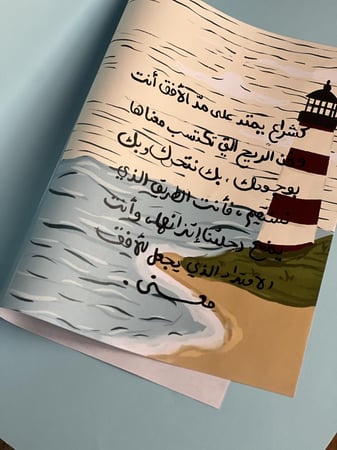 كشراع يمتد على مدّ الأفق أنت
ومن الريح التي تكتسب معناها
بوجودك ، بك نتحرك وبك
فأنت الطريق الذي
يمنح رحلتنا إتزانها، وأنت
الامتداد الذي يجعل للأفق
معنى .